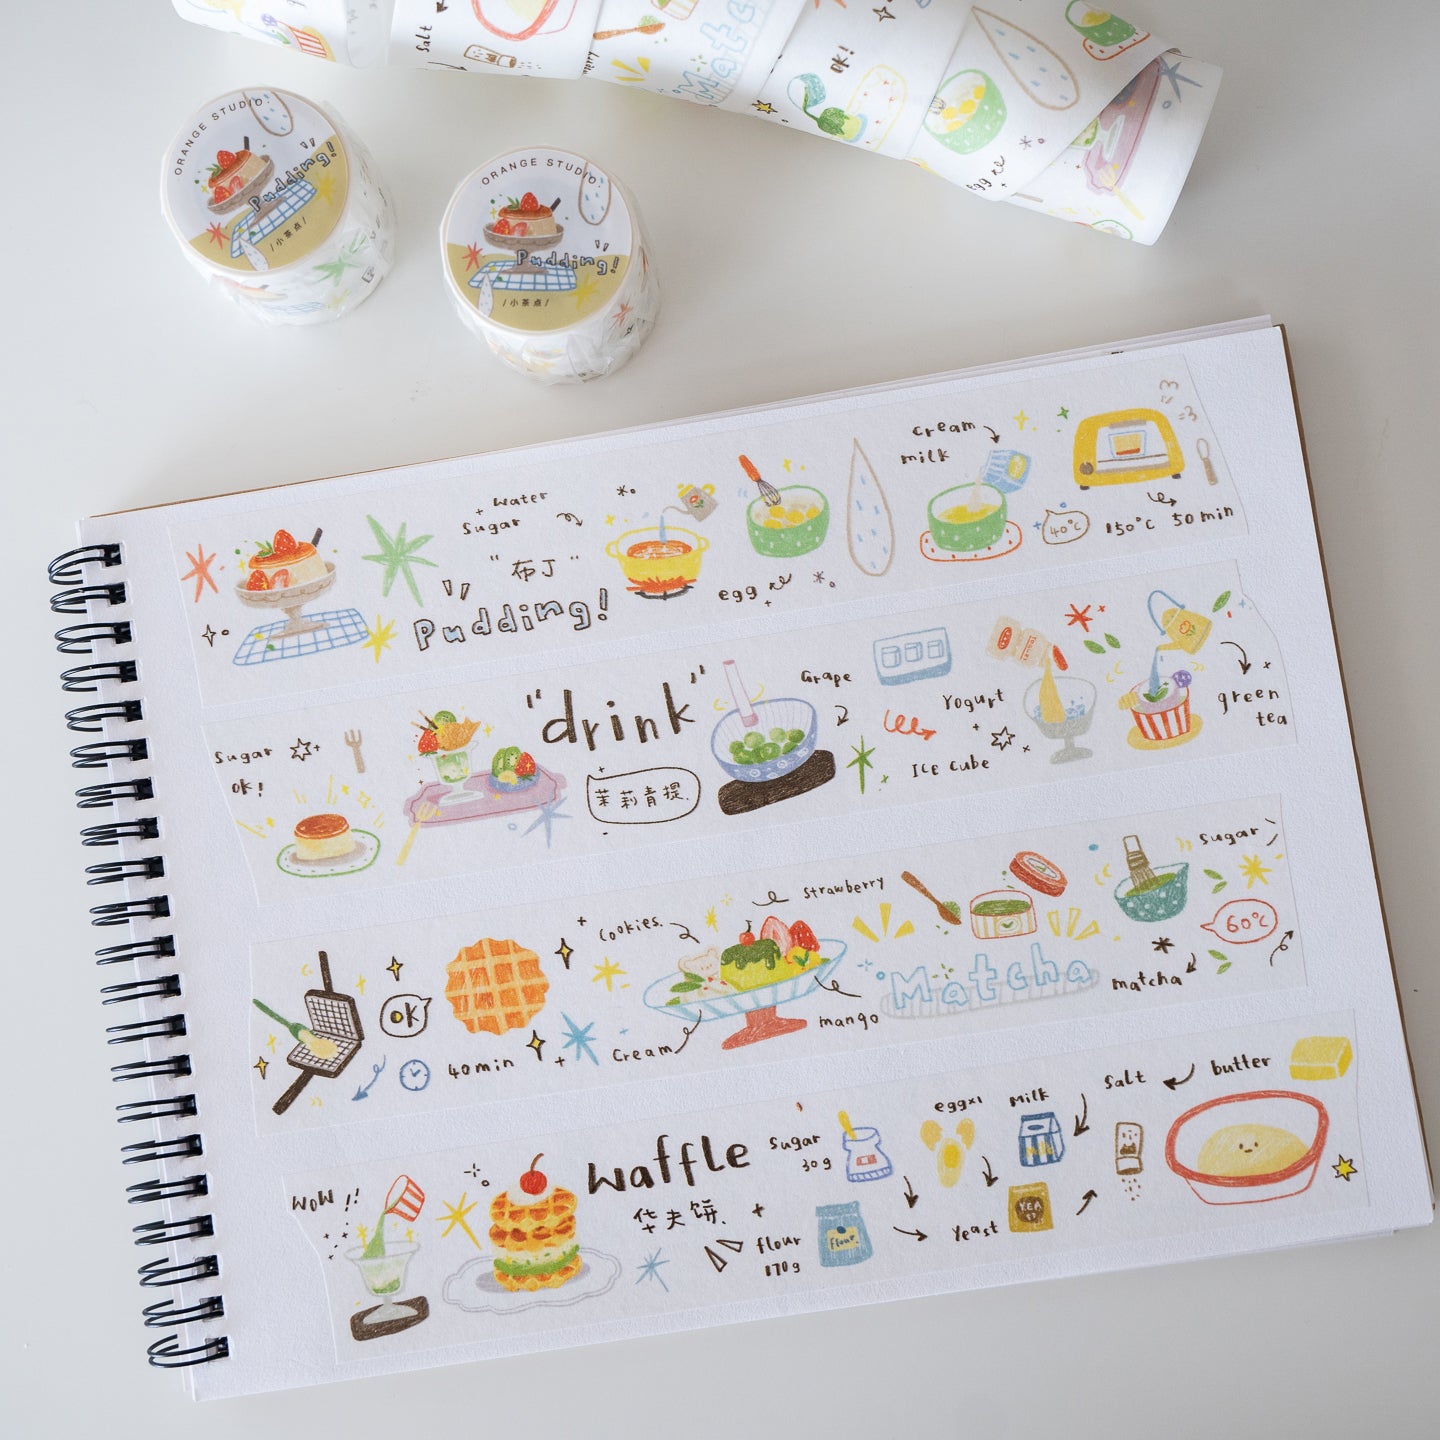 Salt
Matcha
OK!
egg
ORANGE STUDIO.
Pudding!
/小茶点/
ORANGE STUDIO.
Pudding!
/小茶点/
water
+
Sugar
"布丁"
Pudding!
egg
+
cream
milk
40°C
150°C 50 min
Sugar
OK!
"drink"
茉莉青提.
Grape
Yogurt
+
ICE Cube
green
tea
OK
40min
Cookies.
Strawberry
Cream
mango
Matcha
Sugar
60°C
matcha
WOW!!
waffle
华夫饼.
+
flour
170g
Sugar
30g
flour.
eggx1
Milk
Yeast
YEA
ST
Salt
butter